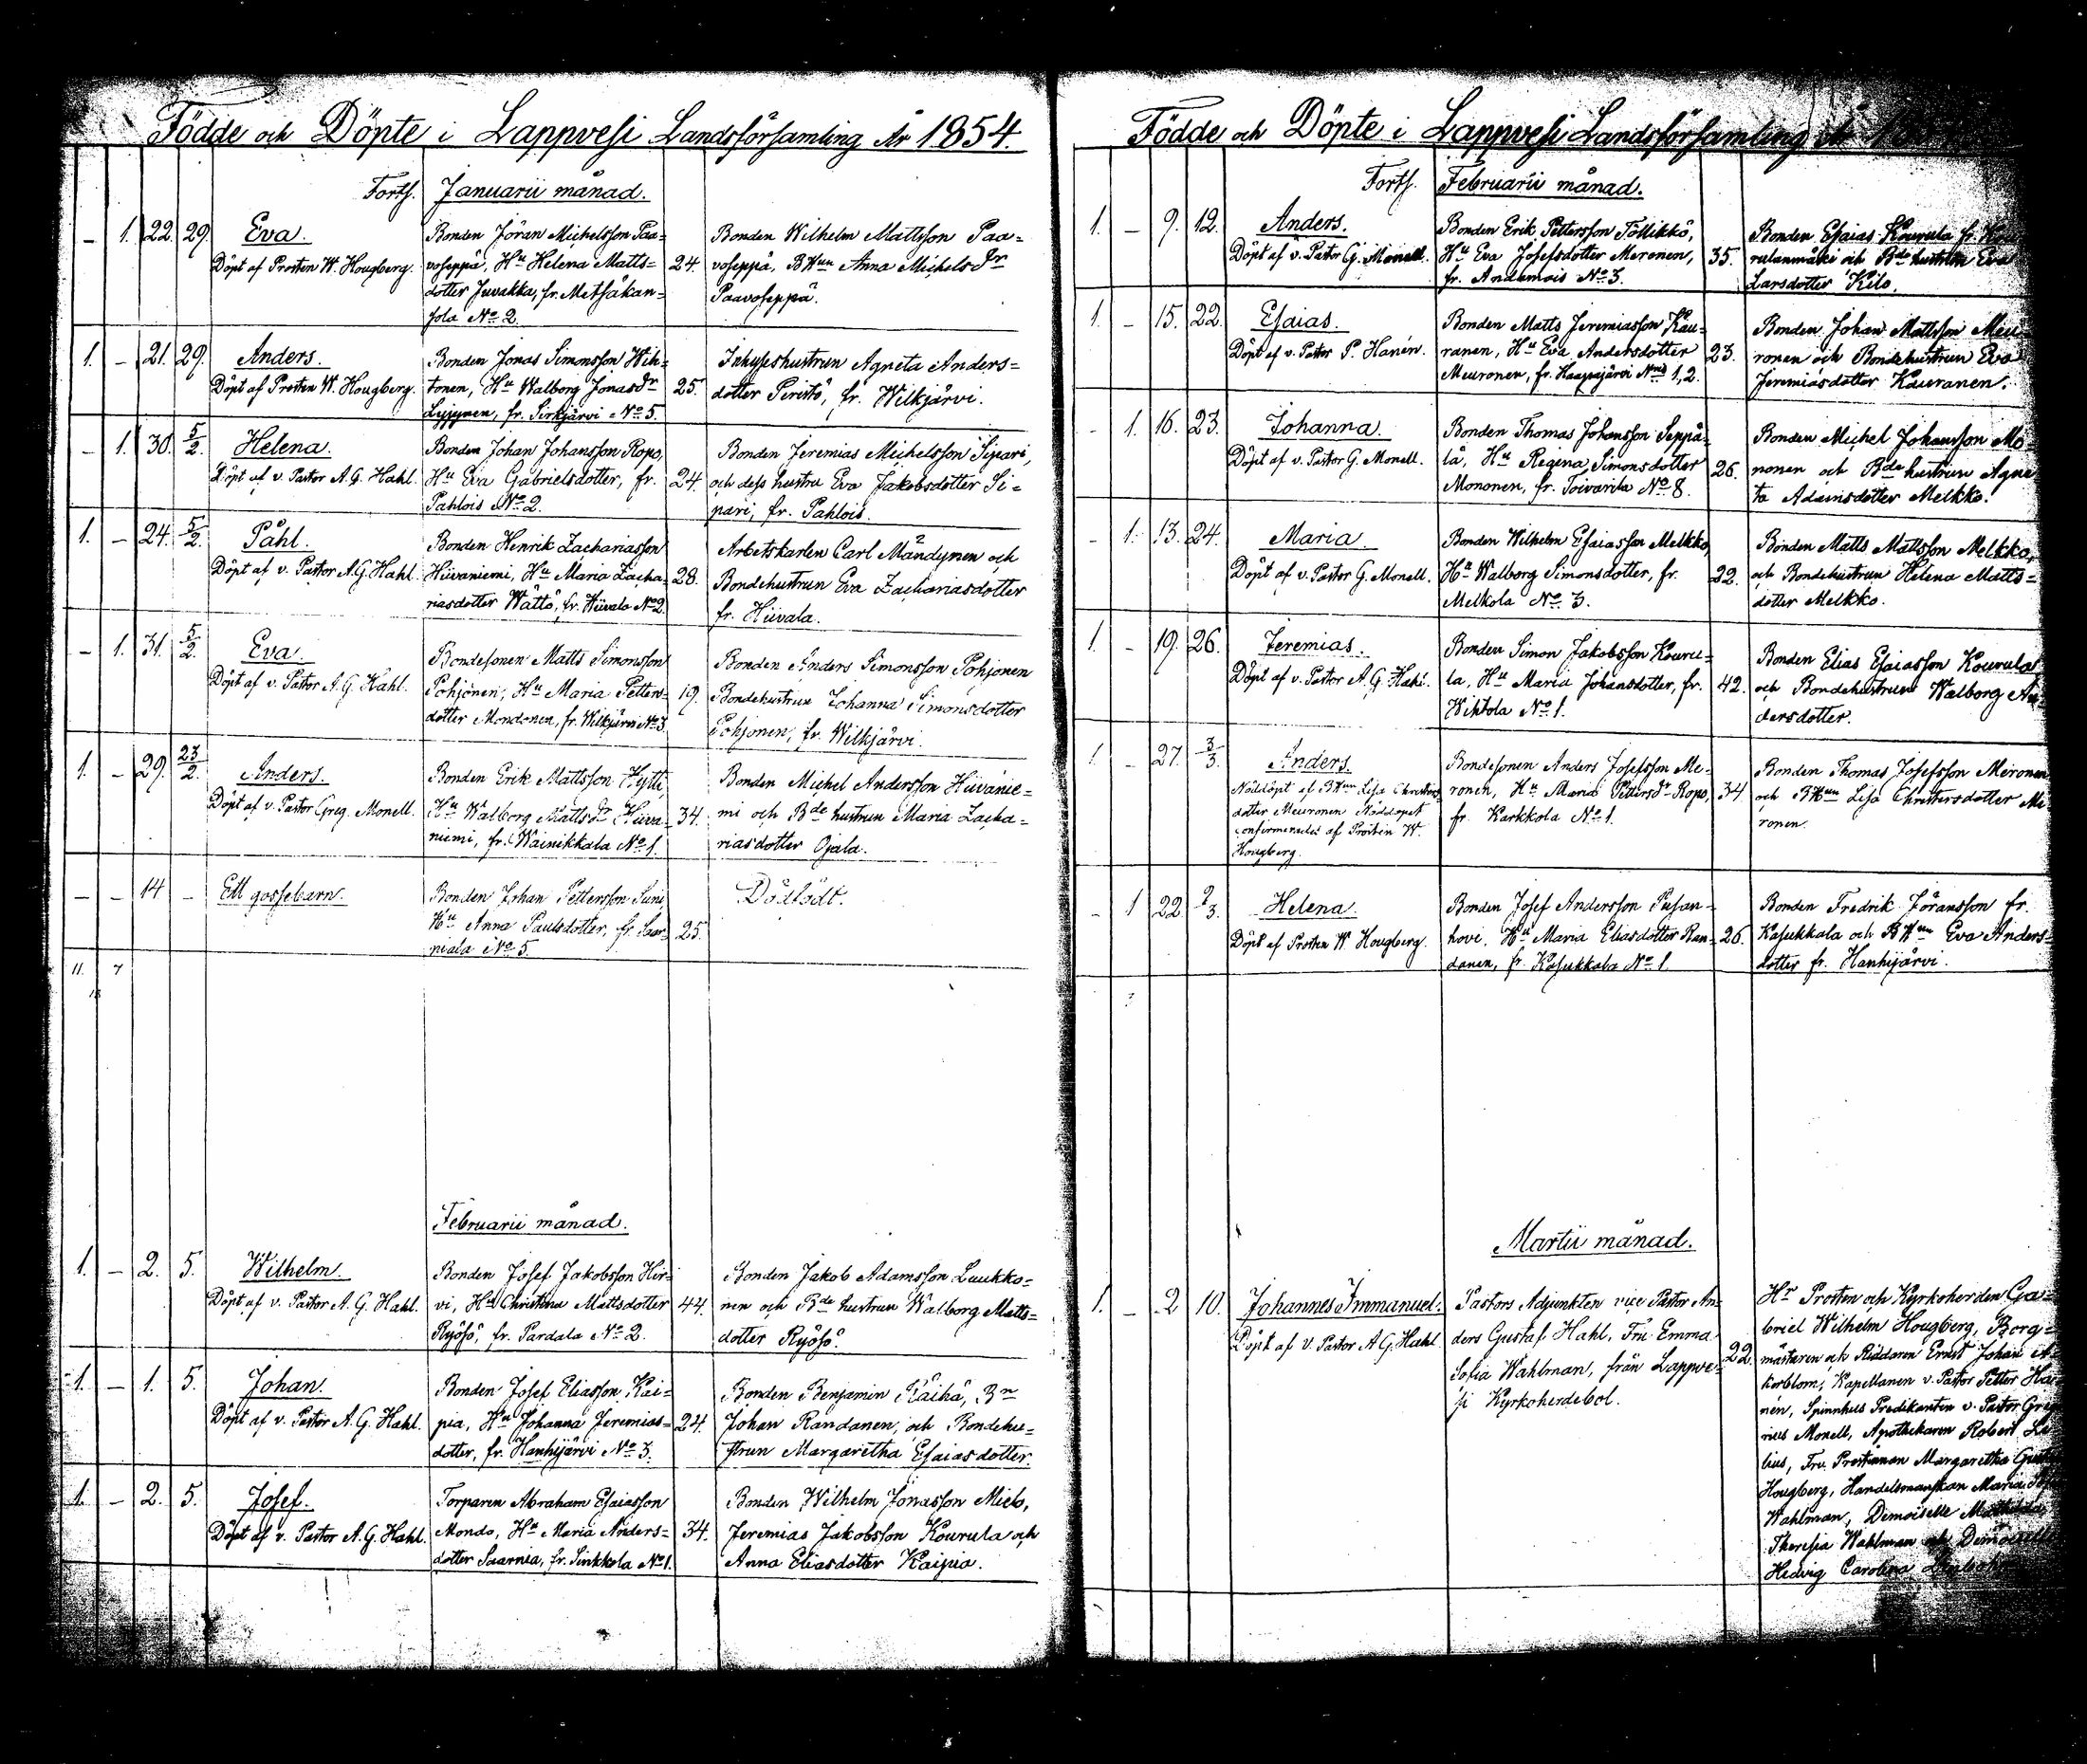 Födde och Döpte i Lappvesi Landsförsamling År 1854.
Forts. Januarii månad.
– 1. 22. 29. Eva.
Döpt af Prosten W. Hougberg.
Bonden Jöran Michelsson Paa-
voseppä, Hu Helena Matts-
dotter Juvakka, fr. Metsäkan-
sola No 2.
24.
Bonden Wilhelm Mattsson Paa-
voseppä, BHun Anna Michelsdr
Paavoseppä.
1. – 21. 29. Anders.
Döpt af Prosten W. Hougberg.
Bonden Jonas Simonsson Wih-
tonen, Hu Walborg Jonasdr
Lyjynen, fr. Sirkjärvi No 5.
25.
Inhyseshustrun Agneta Anders-
dotter Piristö, fr. Wilkjärvi.
– 1. 30. 5/2. Helena.
Döpt af v. Pastor A. G. Hahl.
Bonden Johan Johansson Ropo,
Hu Eva Gabrielsdotter, fr.
Pahlois No 2.
24.
Bonden Jeremias Michelsson Sipari,
och dess hustru Eva Jakobsdotter Si-
pari, fr. Pahlois.
1. – 24. 5/2. Påhl.
Döpt af v. Pastor A. G. Hahl.
Bonden Henrik Zachariasson
Hiivaniemi, Hu Maria Zacha-
riasdotter Wättö, fr. Hiivala No 2.
28.
Arbetskarlen Carl Mändynen och
Bondehustrun Eva Zachariasdotter
fr. Hiivala.
– 1. 31. 5/2. Eva.
Döpt af v. Pastor A. G. Hahl.
Bondesonen Matts Simonsson
Pohjonen, Hu Maria Petters-
dotter Mondonen, fr. Wilkjärvi No 3.
19.
Bonden Anders Simonsson Pohjonen
Bondehustrun Johanna Simonsdotter
Pohjonen, fr. Wilkjärvi.
1. – 29. 23/2. Anders.
Döpt af v. Pastor Greg. Monell.
Bonden Erik Mattsson Hytti,
Hu Walborg Mattsdr Hiiva-
niemi, fr. Wainikkala No 1.
34.
Bonden Michel Andersson Hiivanie-
mi och Bde hustrun Maria Zacha-
riasdotter Ojala.
– – 14 – Ett gossebarn.
Bonden Johan Pettersson Suni,
Hu Anna Paulsdotter, fr. Saar-
niala No 5.
25.
Dödfödt.
11. 7
18
Februarii månad.
1. – 2. 5. Wilhelm.
Döpt af v. Pastor A. G. Hahl.
Bonden Josef Jakobsson Hir-
vi, Hu Christina Mattsdotter
Ryösö, fr. Pardala No 2.
44.
Bonden Jakob Adamsson Luukko-
nen och Bde hustrun Walborg Matts-
dotter Ryösö.
1 – 1. 5. Johan.
Döpt af v. Pastor A. G. Hahl.
Bonden Josef Eliasson Kai-
pia, Hu Johanna Jeremias-
dotter, fr. Hanhijärvi No 3.
24.
Bonden Benjamin Räihä, Bn
Johan Randanen, och Bondehu-
strun Margaretha Esaiasdotter.
1. – 2. 5. Josef.
Döpt af v. Pastor A. G. Hahl.
Torparen Abraham Esaiasson
Mondo, Hu Maria Anders-
dotter Saarnia, fr. Sinkkola No 1.
34.
Bonden Wilhelm Jonasson Mielo,
Jeremias Jakobsson Kourula och
Anna Eliasdotter Kaipia.
Födde och Döpte i Lappvesi Landsförsamling År
Forts. Februarii månad.
1. – 9. 12. Anders.
Döpt af v. Pastor G. Monell.
Bonden Erik Pettersson Töllikkö,
Hu Eva Josefsdotter Meronen,
fr. Andamois No 3.
35.
Bonden Esaias Kourula fr.
rulanmäki och Bde hustrun Eva
Larsdotter Kilo.
1. – 15. 22. Esaias.
Döpt af v. Pastor P. Hanén.
Bonden Matts Jeremiasson Kau-
ranen, Hu Eva Andersdotter
Meuronen, fr. Haapajärvi No 1, 2.
23.
Bonden Johan Mattsson Meu-
ronen och Bondehustrun Eva
Jeremiasdotter Kauranen.
– 1. 16. 23. Johanna.
Döpt af v. Pastor G. Monell.
Bonden Thomas Johansson Seppä-
lä, Hu Regina Simonsdotter
Mononen, fr. Toivarila No 8.
26.
Bonden Michel Johansson Mo-
nonen och Bde hustrun Agne-
ta Adamsdotter Melkko.
– 1. 13. 24. Maria.
Döpt af v. Pastor G. Monell.
Bonden Wilhelm Esaiasson Melkko,
Hu Walborg Simonsdotter, fr.
Melkola No 3.
22.
Bonden Matts Mattsson Melkko,
och Bondehustrun Helena Matts-
dotter Melkko.
1. – 19. 26. Jeremias.
Döpt af v. Pastor A. G. Hahl.
Bonden Simon Jakobsson Kouru-
la, Hu Maria Johansdotter, fr.
Wihtola No 1.
42.
Bonden Elias Esaiasson Kourula
och Bondehustrun Walborg An-
dersdotter.
1. – 27. 3/3. Anders.
Nöddöpt af BHun Lisa Christers-
dotter Meuronen Nöddopet
confirmerades af Prosten W.
Hougberg.
Bondesonen Anders Josefsson Me-
ronen, Hu Maria Pettersdr Ropo,
fr. Karkkola No 1.
34.
Bonden Thomas Josefsson Meronen
och BHun Lisa Christersdotter Me-
ronen.
– 1 22 2/3. Helena.
Döpt af Prosten W. Hougberg.
Bonden Josef Andersson Pusan-
hovi, Hu Maria Eliasdotter Ran-
danen, fr. Kasukkala No 1.
26.
Bonden Fredrik Jöransson fr.
Kasukkala och BHun Eva Anders-
dotter fr. Hanhijärvi.
Martii månad.
1. – 2 10. Johannes Immanuel.
Döpt af v. Pastor A G. Hahl
Pastors Adjunkten vice Pastor An-
ders Gustaf Hahl, Fru Emma
Sofia Wahlman, från Lappve-
si Kyrkoherdebol.
22.
Hr Prosten och Kyrkoherden Ga-
briel Wilhelm Hougberg, Borg-
mästaren och Riddaren Ernst Johan
Kapellanen v. Pastor Petter Ha-
nen, Spinnhus Predikanten v. Pastor Grego-
rius Monell, Apothekaren Robert
Fru Prostinnan Margaretha
Hougberg, Handelsmanskan Maria
Wahlman, Demoiselle Mathilda
Theresia Wahlman och Demoiselle
Hedvig Carolina